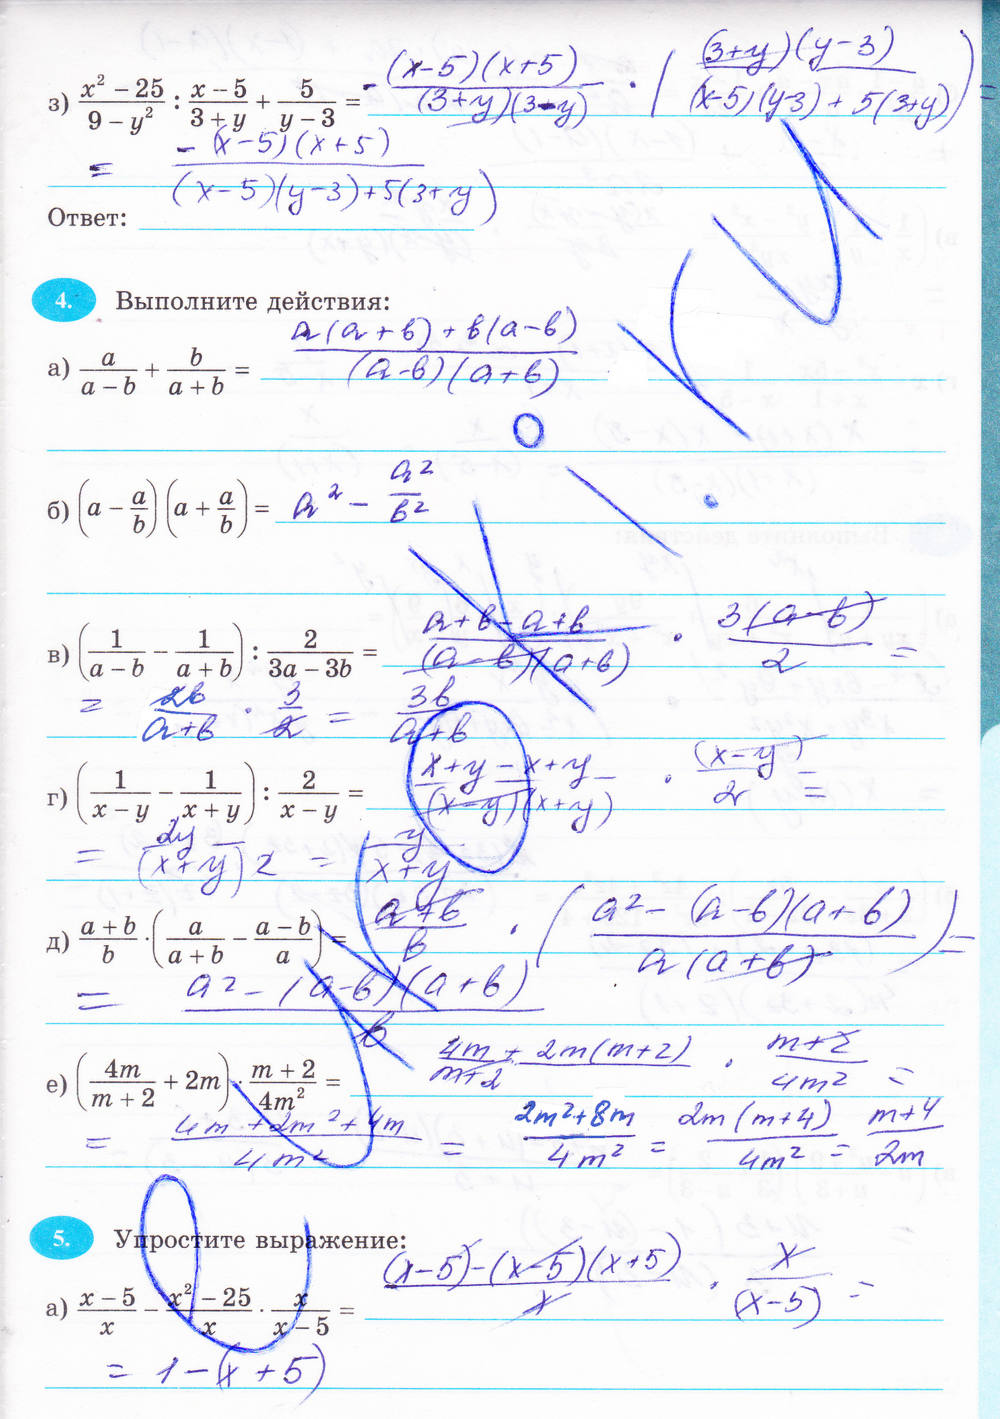 з) (x² − 25)/(9 − y²) : (x − 5)/(3 + y) + 5/(y − 3) = - (x-5)(x+5)/((3+y)(3-y)) · ((3+y)(y-3)/((x-5)(y-3) + 5(3+y))) =
= - (x-5)(x+5)/((x-5)(y-3)+5(3+y))
Ответ:
4. Выполните действия:
а) a/(a − b) + b/(a + b) = (a(a+b) + b(a-b))/((a-b)(a+b))
б) (a − a/b)(a + a/b) = a² - a²/b²
в) (1/(a − b) − 1/(a + b)) : 2/(3a − 3b) = (a+b-a+b)/((a-b)(a+b)) · 3(a-b)/2 =
= 2b/(a+b) · 3/2 = 3b/(a+b)
г) (1/(x − y) − 1/(x + y)) : 2/(x − y) = (x+y-x+y)/((x-y)(x+y)) · (x-y)/2 =
= 2y/((x+y)2) = y/(x+y)
д) (a + b)/b · (a/(a + b) − (a − b)/a) = (a+b)/b · ((a² - (a-b)(a+b))/(a(a+b))) =
= (a² - (a-b)(a+b))/b
е) (4m/(m + 2) + 2m) · (m + 2)/4m² = (4m + 2m(m+2))/(m+2) · (m+2)/4m² =
= (4m+2m²+4m)/4m² = (2m²+8m)/4m² = 2m(m+4)/4m² = (m+4)/2m
5. Упростите выражение:
а) (x − 5)/x − (x² − 25)/x · x/(x − 5) = ((x-5)-(x-5)(x+5))/x · x/(x-5) =
= 1-(x+5)